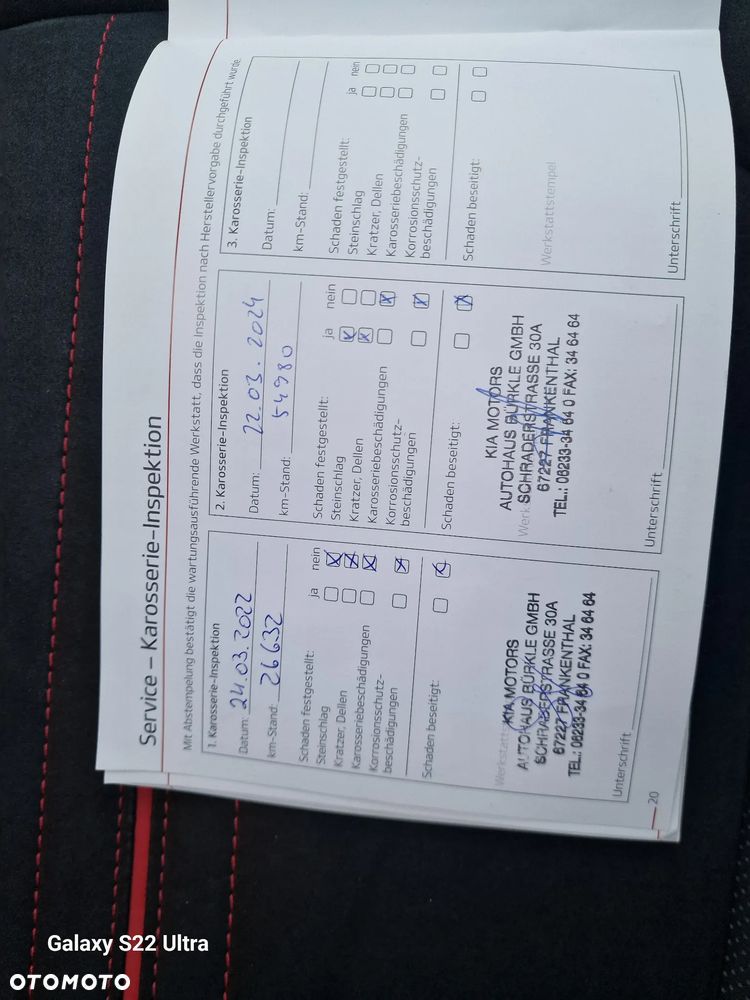 Service – Karosserie-Inspektion
Mit Abstempelung bestätigt die wartungsausführende Werkstatt, dass die Inspektion nach Herstellervorgabe durchgeführt wurde.
1. Karosserie-Inspektion
Datum: 24.03.2022
km-Stand: 26632
Schaden festgestellt: ja nein
Steinschlag
Kratzer, Dellen
Karosseriebeschädigungen
Korrosionsschutz-
beschädigungen
Schaden beseitigt:
KIA MOTORS
AUTOHAUS BÜRKLE GMBH
SCHRADERSTRASSE 30A
67227 FRANKENTHAL
TEL.: 06233-34 64 0 FAX: 34 64 64
Unterschrift
2. Karosserie-Inspektion
Datum: 22.03.2024
km-Stand: 54980
Schaden festgestellt: ja nein
Steinschlag
Kratzer, Dellen
Karosseriebeschädigungen
Korrosionsschutz-
beschädigungen
Schaden beseitigt:
KIA MOTORS
AUTOHAUS BÜRKLE GMBH
SCHRADERSTRASSE 30A
67227 FRANKENTHAL
TEL.: 06233-34 64 0 FAX: 34 64 64
Unterschrift
3. Karosserie-Inspektion
Datum:
km-Stand:
Schaden festgestellt: ja nein
Steinschlag
Kratzer, Dellen
Karosseriebeschädigungen
Korrosionsschutz-
beschädigungen
Schaden beseitigt:
Werkstattstempel
Unterschrift
20
Galaxy S22 Ultra
OTOMOTO